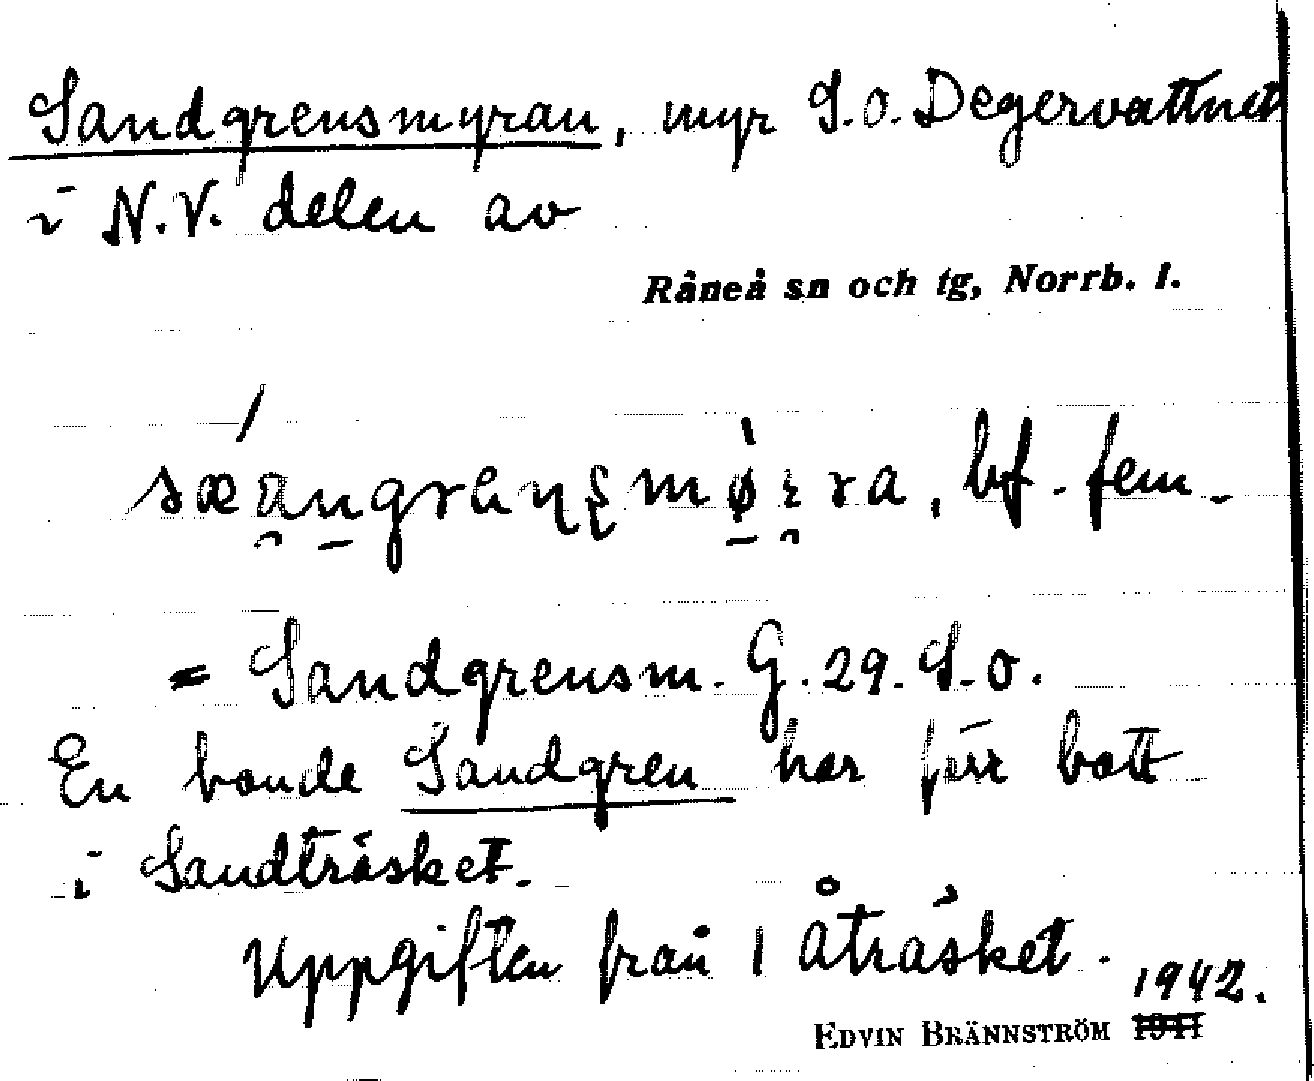 Sandgrensmyran, myr S.o. Degervattnet
i N.V. delen av
Råneå sn och tg, Norrb. l.
bf. fem.
= Sandgrensm. G. 29. S.o.
En bonde Sandgren har förr bott
i Sandträsket.
Uppgiften från 1 Åträsket.
1942.
EDVIN BRÄNNSTRÖM 1941